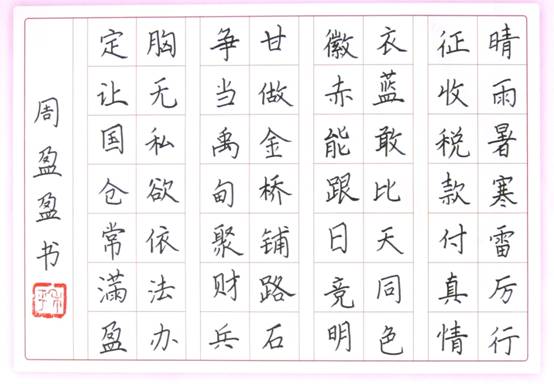 晴雨暑寒雷厉行
征收税款付真情
衣蓝敢比天同色
徽赤能跟日竞明
甘做金桥铺路石
争当禹甸聚财兵
胸无私欲依法办
定让国仓常满盈
周盈盈书